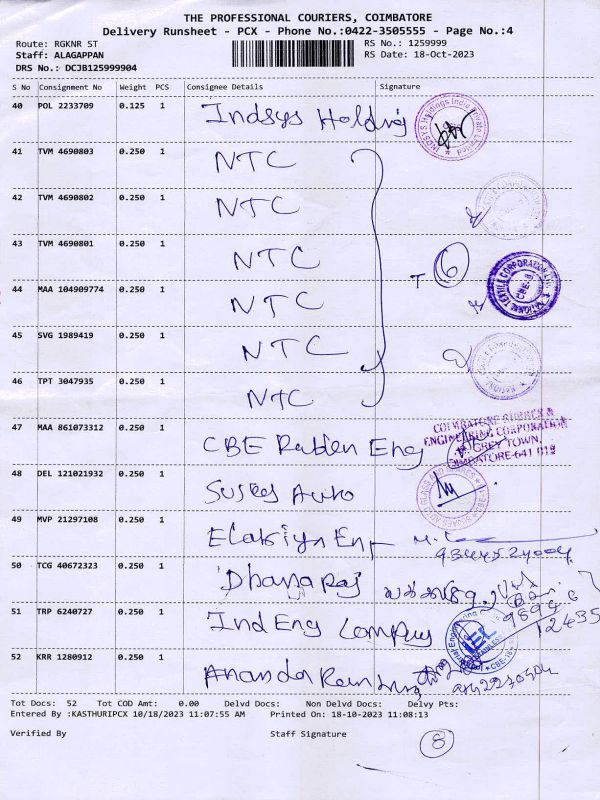 THE PROFESSIONAL COURIERS, COIMBATORE
Delivery Runsheet - PCX - Phone No.:0422-3505555 - Page No.:4
Route: RGKNR ST RS No.: 1259999
Staff: ALAGAPPAN RS Date: 18-Oct-2023
DRS No.: DCJB125999904
S No Consignment No Weight PCS Consignee Details Signature
40 POL 2233709 0.125 1 Indsys Holding
41 TVM 4690803 0.250 1 NTC
42 TVM 4690802 0.250 1 NTC
43 TVM 4690801 0.250 1 NTC
T 6
44 MAA 104909774 0.250 1 NTC
45 SVG 1989419 0.250 1 NTC
46 TPT 3047935 0.250 1 NTC
47 MAA 861073312 0.250 1 CBE Rubber Eng
COIMBATORE RUBBER &
ENGINEERING CORPORATION
GREY TOWN,
COIMBATORE-641 018
48 DEL 121021932 0.250 1 Auto
49 MVP 21297108 0.250 1
50 TCG 40672323 0.250 1 Dhanaraj
9894 6
12435
51 TRP 6240727 0.250 1 Ind Eng Company
52 KRR 1280912 0.250 1 Ananda
Tot Docs: 52 Tot COD Amt: 0.00 Delvd Docs: Non Delvd Docs: Delvy Pts:
Entered By :KASTHURIPCX 10/18/2023 11:07:55 AM Printed On: 18-10-2023 11:08:13
Verified By Staff Signature
8